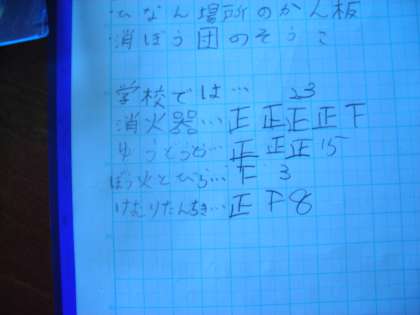 ・ひなん場所のかん板
・消ぼう団のそうこ
学校では… 23
消火器…正 正 正 正 下
ゆうどうとう…正 正 正 15
ぼう火とびら…下 3
けむりたんちき…正 下 8